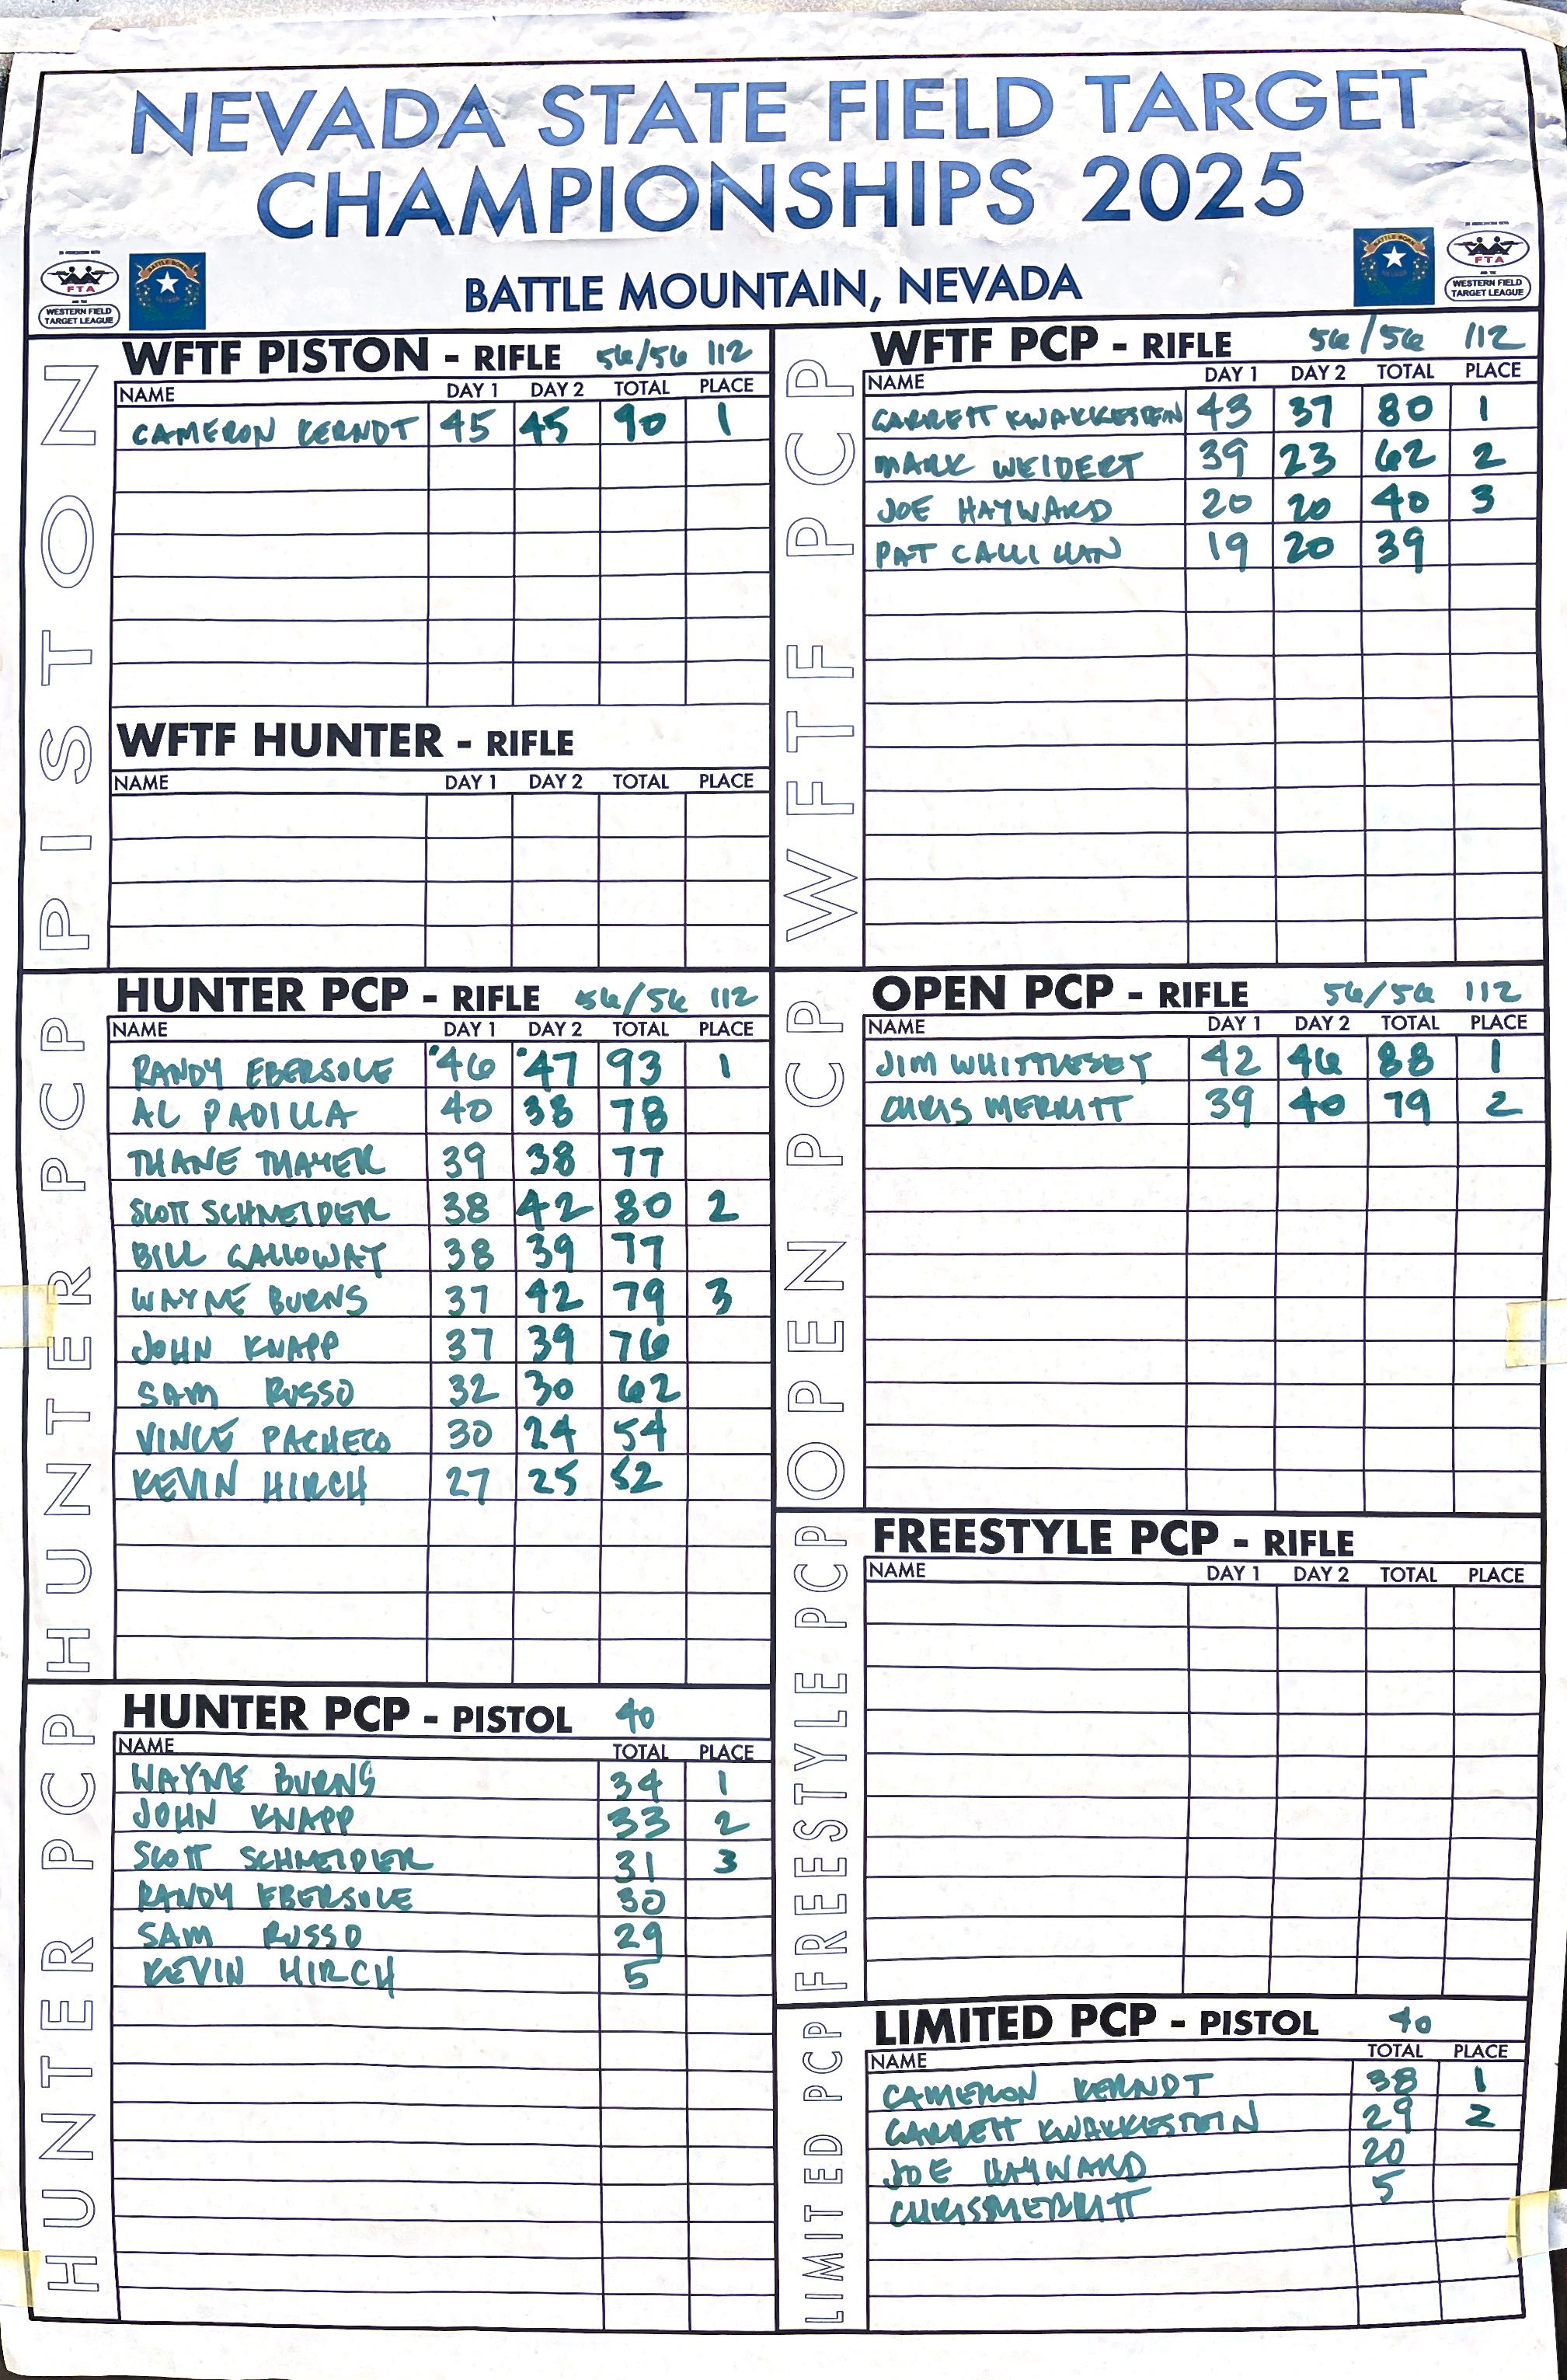 NEVADA STATE FIELD TARGET
CHAMPIONSHIPS 2025
BATTLE MOUNTAIN, NEVADA
FTA
WESTERN FIELD
TARGET LEAGUE
BATTLE BORN
NEVADA
BATTLE BORN
NEVADA
FTA
WESTERN FIELD
TARGET LEAGUE
PISTON
WFTF PISTON - RIFLE 56/56 112
NAME DAY 1 DAY 2 TOTAL PLACE
CAMERON KERNDT 45 45 90 1
WFTF HUNTER - RIFLE
NAME DAY 1 DAY 2 TOTAL PLACE
WFTF PCP
WFTF PCP - RIFLE 56/56 112
NAME DAY 1 DAY 2 TOTAL PLACE
GARRETT KWAKKESTEIN 43 37 80 1
MARK WEIDERT 39 23 62 2
JOE HAYWARD 20 20 40 3
PAT CALLIHAN 19 20 39
HUNTER PCP
HUNTER PCP - RIFLE 56/56 112
NAME DAY 1 DAY 2 TOTAL PLACE
RANDY EBERSOLE 46 47 93 1
AL PADILLA 40 38 78
THANE THAYER 39 38 77
SCOTT SCHNEIDER 38 42 80 2
BILL GALLOWAY 38 39 77
WAYNE BURNS 37 42 79 3
JOHN KNAPP 37 39 76
SAM RUSSO 32 30 62
VINCE PACHECO 30 24 54
KEVIN HIRCH 27 25 52
OPEN PCP
OPEN PCP - RIFLE 56/56 112
NAME DAY 1 DAY 2 TOTAL PLACE
JIM WHITTLESEY 42 46 88 1
CHRIS MERRITT 39 40 79 2
FREESTYLE PCP
FREESTYLE PCP - RIFLE
NAME DAY 1 DAY 2 TOTAL PLACE
HUNTER PCP
HUNTER PCP - PISTOL 40
NAME TOTAL PLACE
WAYNE BURNS 34 1
JOHN KNAPP 33 2
SCOTT SCHNEIDER 31 3
RANDY EBERSOLE 30
SAM RUSSO 29
KEVIN HIRCH 5
LIMITED PCP
LIMITED PCP - PISTOL 40
NAME TOTAL PLACE
CAMERON KERNDT 38 1
GARRETT KWAKKESTEIN 29 2
JOE HAYWARD 20
CHRIS MERRITT 5